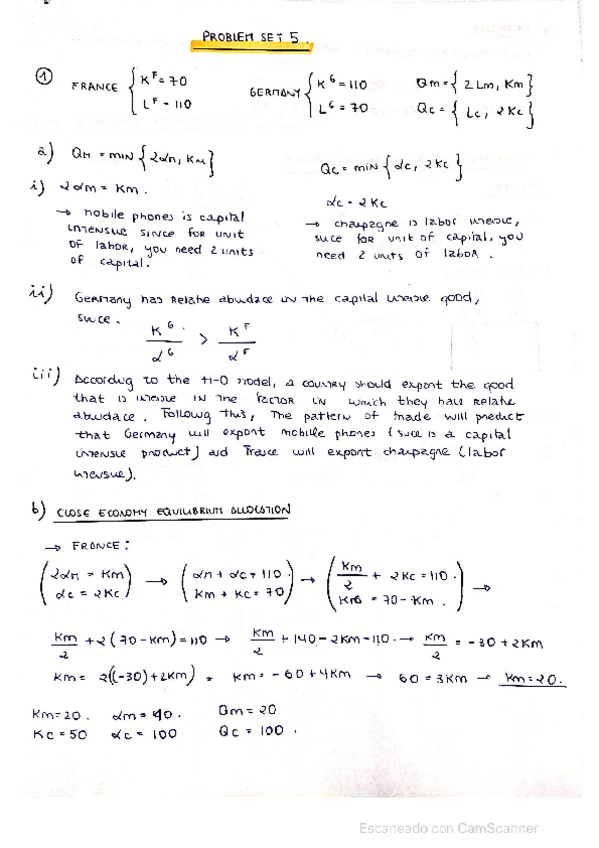 PROBLEM SET 5.
① FRANCE { K^F = 70
L^F = 110
GERMANY { K^G = 110
L^G = 70
Qm = { 2Lm, Km }
Qc = { Lc, 2Kc }
a) QM = MIN { 2Lm, KM }
QC = MIN { Lc, 2Kc }
i) 2Lm = Km.
Lc = 2Kc
→ mobile phones is capital
intensive since for unit
of labor, you need 2 units
of capital.
→ champagne is labor intensive,
since for unit of capital, you
need 2 units of labor.
ii) Germany has relate abundace in the capital intensive good,
since.
K^G / L^G > K^F / L^F
iii) According to the H-O model, a country should export the good
that is intensive in the factor in which they have relate
abundace. Following this, the pattern of trade will predict
that Germany will export mobile phones (since is a capital
intensive product) and France will export champagne (labor
intensive).
b) CLOSE ECONOMY EQUILIBRIUM ALLOCATION
→ FRANCE:
( 2Lm = Km
Lc = 2Kc ) → ( Lm + Lc = 110.
Km + Kc = 70 ) → ( Km/2 + 2Kc = 110.
= 70 - Km. ) →
Km/2 + 2(70 - Km) = 110 → Km/2 + 140 - 2Km = 110. → Km/2 = -30 + 2Km
Km = 2((-30) + 2Km) = Km = -60 + 4Km → 60 = 3Km → Km = 20.
Km = 20. Lm = 40. Qm = 20
Kc = 50 Lc = 100 Qc = 100.
Escaneado con CamScanner